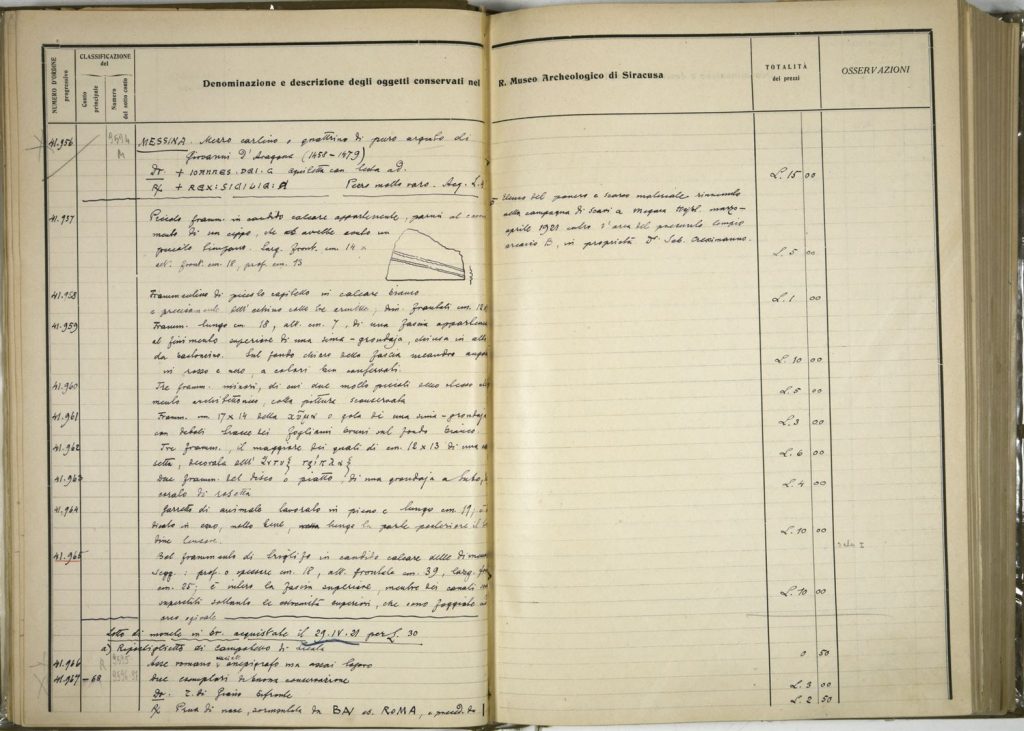 NUMERO D'ORDINE progressivo
CLASSIFICAZIONE del
Conto principale
Numero del sotto conto
Denominazione e descrizione degli oggetti conservati nel R. Museo Archeologico di Siracusa
TOTALITÀ dei prezzi
OSSERVAZIONI
41.956 9594 MESSINA. Mezzo carlino o quattrino di puro argento di
Giovanni D'Aragona (1458-1479)
Dr. + IOANNES. D aquiletta con testa ad.
R/ + REX: SICILIA: Pezzo molto raro. Acq. L. L. 15 00
41.957 Piccolo framm. in candido calcare appartenente, parmi al
mento di un cippo, che avrebbe avuto un
piccolo timpano. Larg. front. cm. 14 x
alt. front. cm. 18, prof. cm. 13 L. 5 00
Elenco del povero e scarso materiale rinvenuto
alla campagna di scavi a Megara Hybl. marzo-
aprile 1921 entro l'area del presunto tempio
arcaico B, in proprietà D. Sab.
41.958 Frammentino di piccolo capitello in calcare bianco
e precisamente dell'echino colle tre armille; dim. frontali cm. 12 L. 1 00
41.959 Framm. lungo cm. 18, alt. cm. 7, di una fascia appartenente
al finimento superiore di una sima-grondaja, chiusa in alto
da bastoncino. Sul fondo chiaro della fascia meandro
in rosso e nero, a colori ben conservati. L. 10 00
41.960 Tre framm. minori, di cui due molto piccoli dello stesso
mento architettonico, colla pittura sconservata L. 5 00
41.961 Framm. cm 17 x 14 della κῦμα o gola di una sima-grondaja
con deboli tracce dei fogliami bruni sul fondo bianco. L. 3 00
41.962 Tre framm., il maggiore dei quali di cm. 12 x 13 di una
setta, decorata all' L. 6 00
41.963 Due framm. del disco o piatto di una grondaja a tubo,
corato di rosetta L. 4 00
41.964 Garretto di animale lavorato in pieno e lungo cm. 19;
dicato in esso, nella lungo la parte posteriore il
dine L. 10 00
41.965 Bel frammento di triglifo in candido calcare delle dimens.
segg.: prof. o spessore cm. 18, alt. frontale cm. 39, larg.
cm. 25; è intera la fascia superiore, mentre dei canali
superstiti soltanto le estremità superiori, che sono foggiate ad
arco ogivale L. 10 00
Lotto di monete in br. acquistate il 29.IV.21 per L. 30
a) Ripostiglietto di
41.966 9595 Asse romano anepigrafo ma assai logoro 0 50
41.967 - 68 Due esemplari di buona conservazione L. 3 00
Dr. T. di Giano bifronte L. 2 50
R/ Prua di nave, sormontata da BAL es. ROMA, e preced. da I